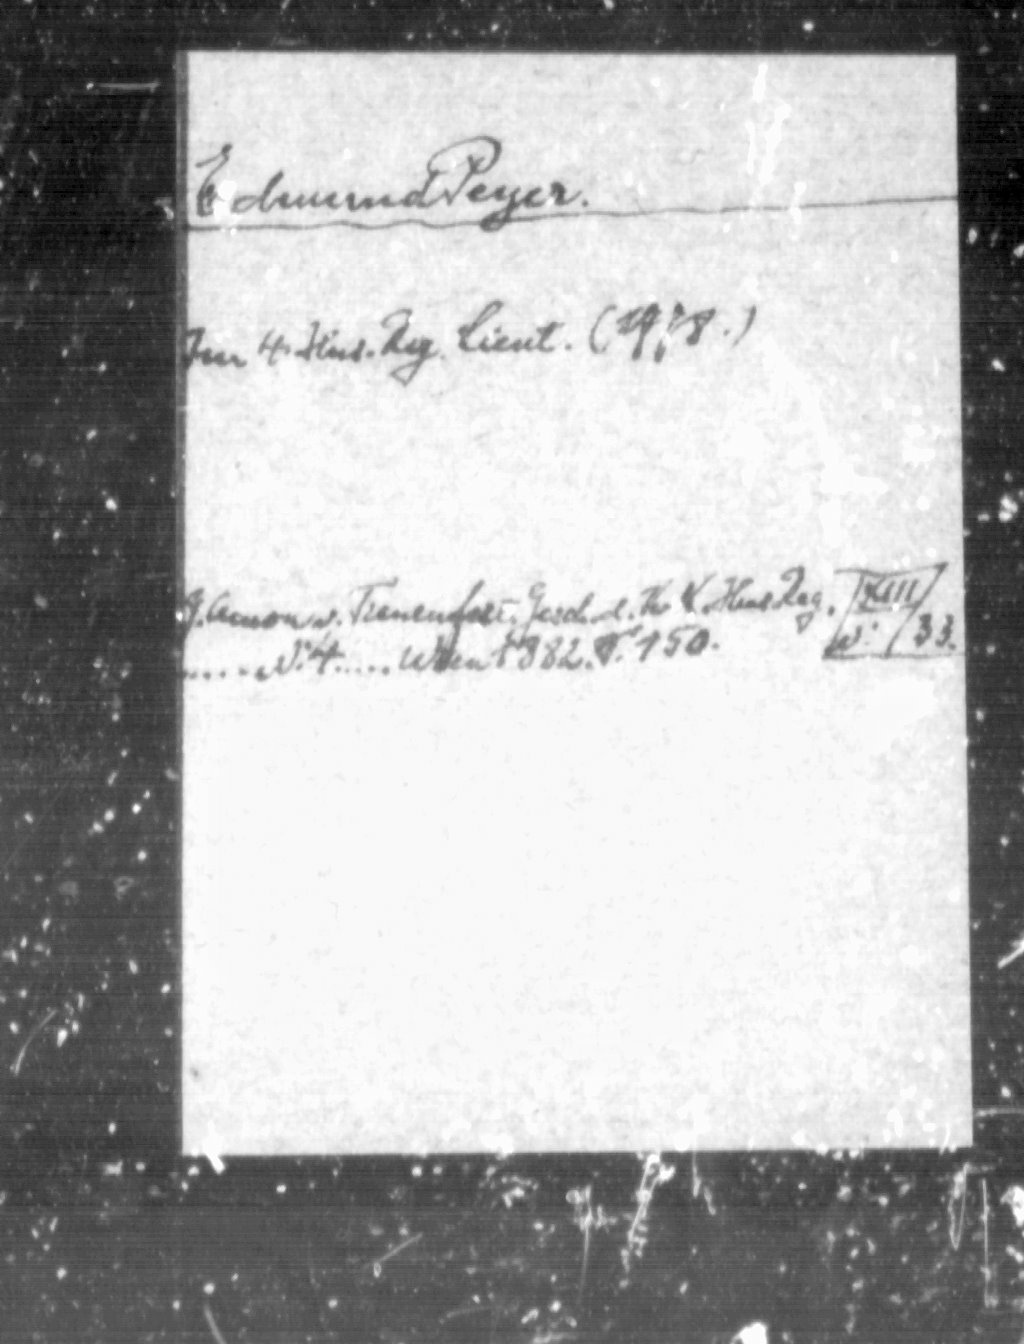 Edmund Peyer.
Im 4. Hus. Reg. Lieut.
G. Amon v. Treuenfest. Gesch. d. K. K. Hus. Reg. XIII
..... N: 4. .... Wien 1882. S. 450. N: 33.